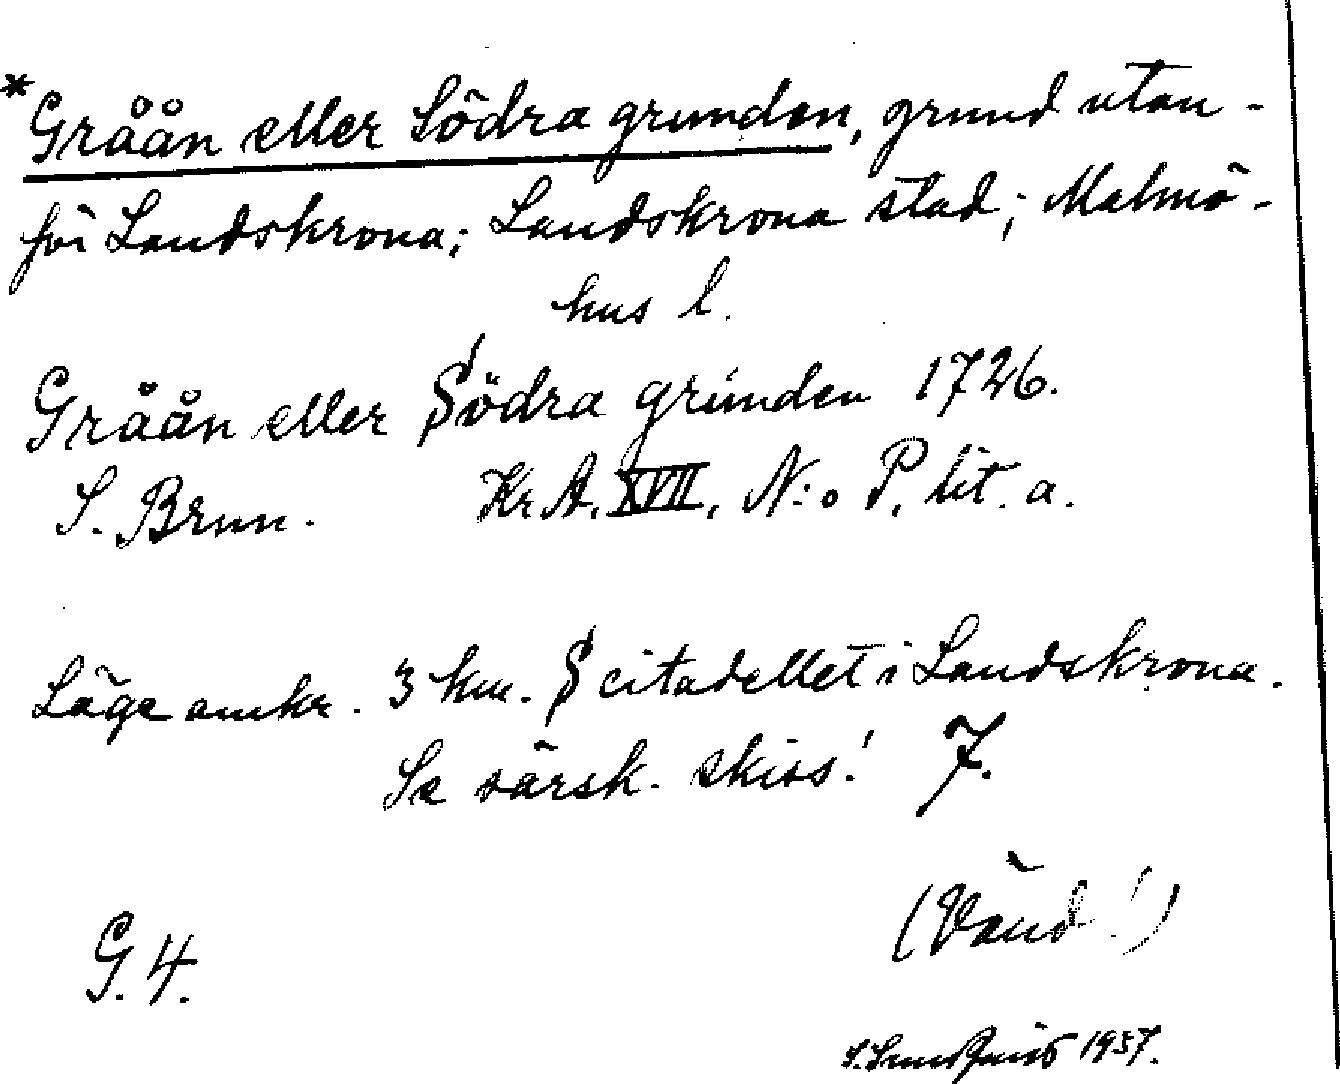 *Gråån eller Södra grunden, grund utan-
för Landskrona; Landskrona stad; Malmö-
hus l.
Gråån eller Södra grúnden 1726.
S. Brun. Kr A. XVII, N:o P, lit. a.
Läge omkr. 3 km. S citadellet i Landskrona.
Se särsk. skiss! 7.
(Vänd!)
G. 4.
1937.